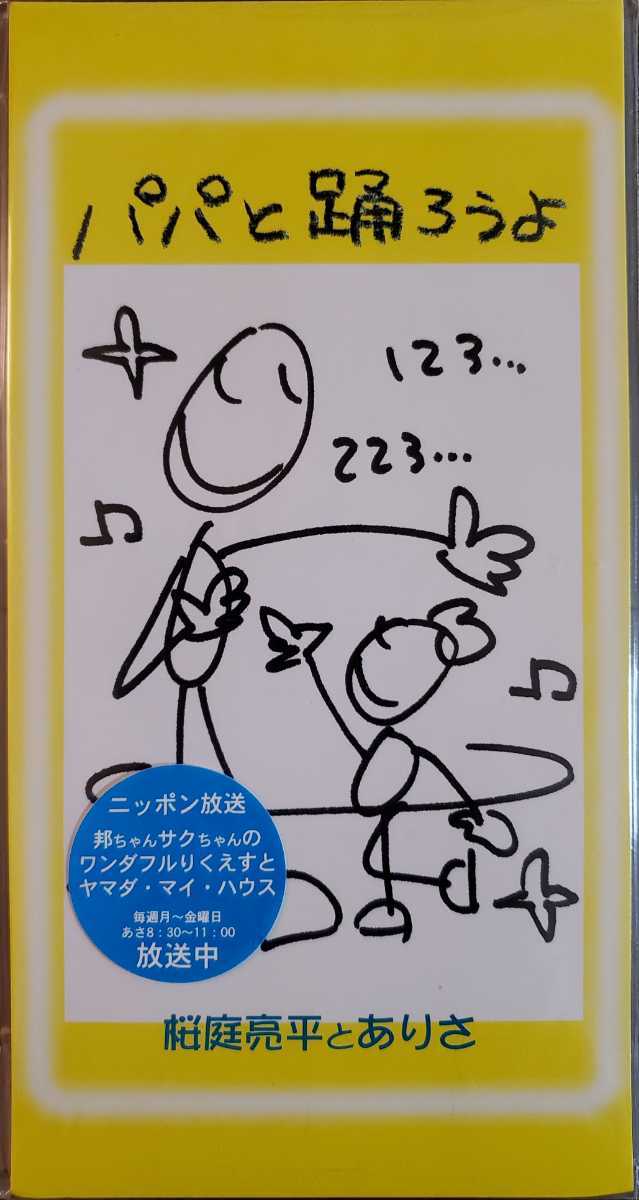 パパと踊ろうよ
123…
223…
ニッポン放送
邦ちゃんサクちゃんの
ワンダフルりくえすと
ヤマダ・マイ・ハウス
毎週月～金曜日
あさ8：30～11：00
放送中
桜庭亮平とありさ